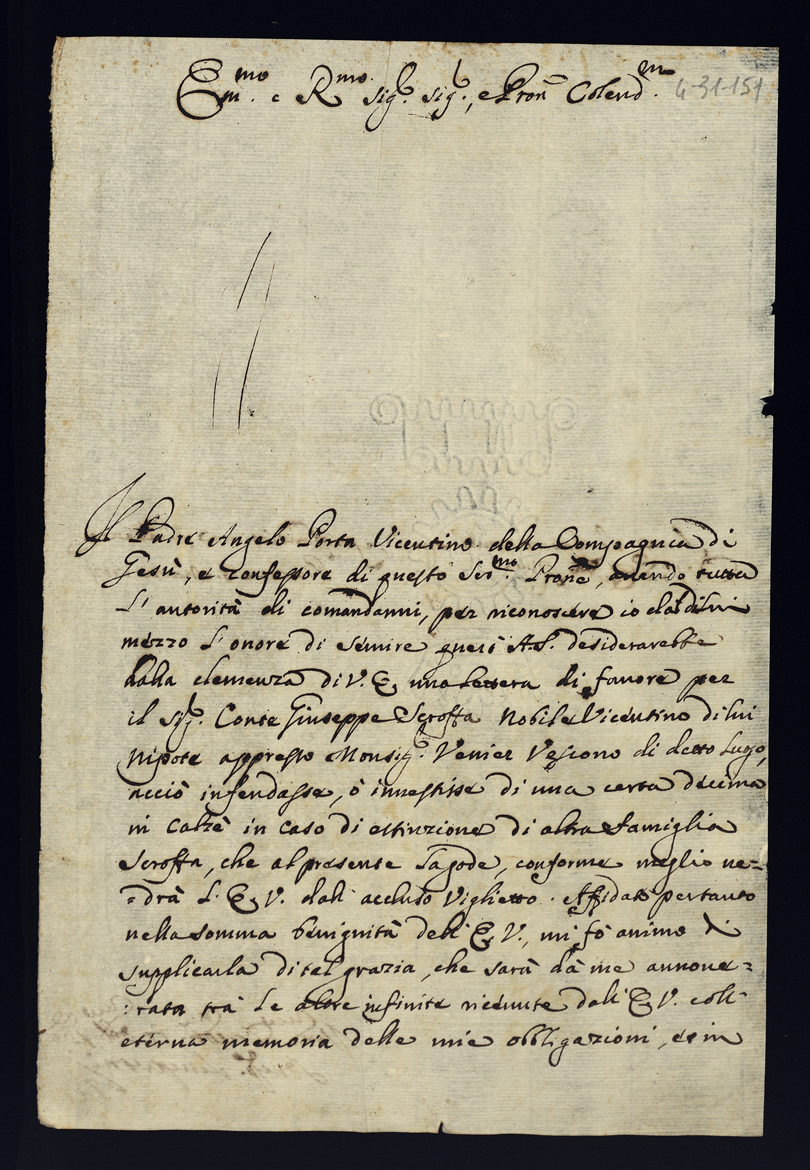 Em.mo e R.mo Sig.r Sig.r, e Pron Colend.mo
4-31-151
Il Padre Angelo Porta Vicentino della Compagnia di
Gesù, e confessore di questo Ser.mo Prone, avendo tutta
l'autorità di comandarmi, per riconoscere io da di lui
mezzo l'onore di servire quest'A.S. desiderarebbe
dalla clemenza di V.E. una lettera di favore per
il Sig.r Conte Giuseppe Scroffa Nobile Vicentino di lui
Nipote appresso Monsig.r Venier Vescovo di detto luogo,
acciò infeudasse, ò investisse di una certa decima
in Calzè in caso di estinzione di altra famiglia
Scroffa, che al presente la gode, conforme meglio ve=
=drà l'E.V. dall'accluso Viglietto. Affidato pertanto
nella somma benignità dell'E.V., mi fò animo di
supplicarla di tal grazia, che sarà da me annove=
:rata trà le altre infinite ricevute dall'E.V. coll'
eterna memoria delle mie obbligazioni, et in